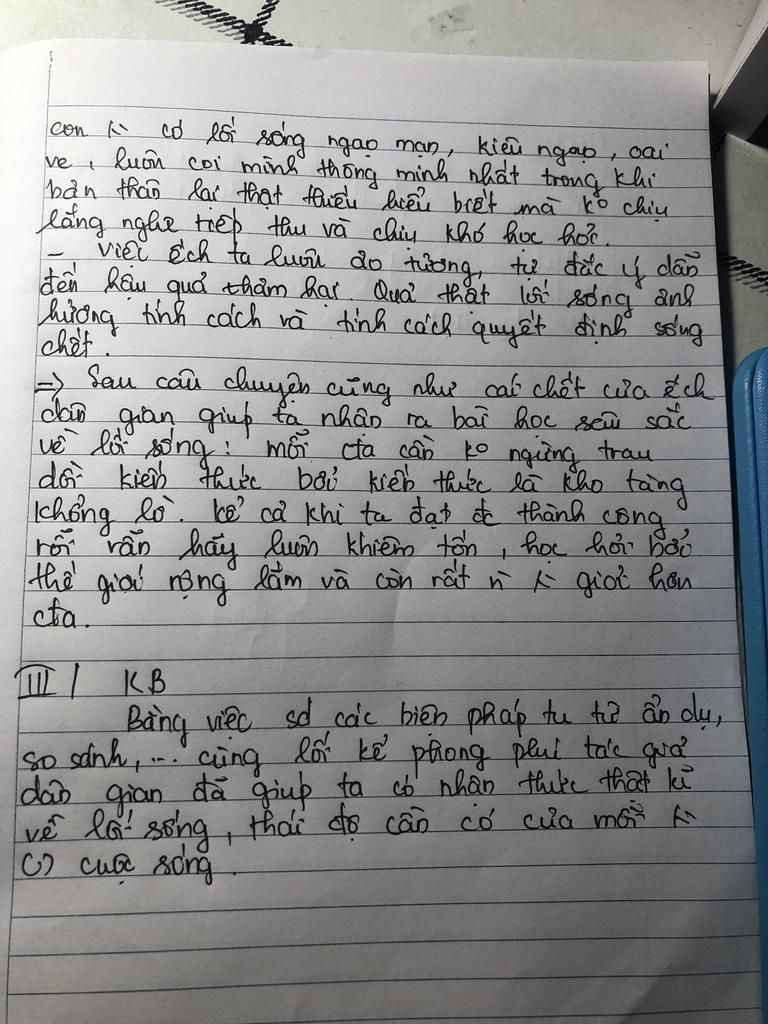 con k có lối sống ngạo mạn, kiêu ngạo, oai
ve, luôn coi mình thông minh nhất trong khi
bản thân lại thật thiếu hiểu biết mà ko chịu
lắng nghe tiếp thu và chịu khó học hỏi.
- Việc ếch ta luôn ảo tưởng, tự đắc ý dẫn
đến hậu quả thảm hại. Quả thật lối sống ảnh
hưởng tính cách và tính cách quyết định sống
chết.
=> Sau câu chuyện cũng như cái chết của ếch
dân gian giúp ta nhận ra bài học sâu sắc
về lối sống: mỗi cta cần ko ngừng trau
dồi kiến thức bởi kiến thức là kho tàng
khổng lồ. Kể cả khi ta đạt đc thành công
rồi vẫn hãy luôn khiêm tốn, học hỏi bởi
thế giới rộng lắm và còn rất giỏi hơn
cta.
III/ KB
Bằng việc sd các biện pháp tu từ ẩn dụ,
so sánh,... cùng lối kể phong phú tác giả
dân gian đã giúp ta có nhận thức thật kĩ
về lối sống, thái độ cần có của mỗi
cuộc sống.